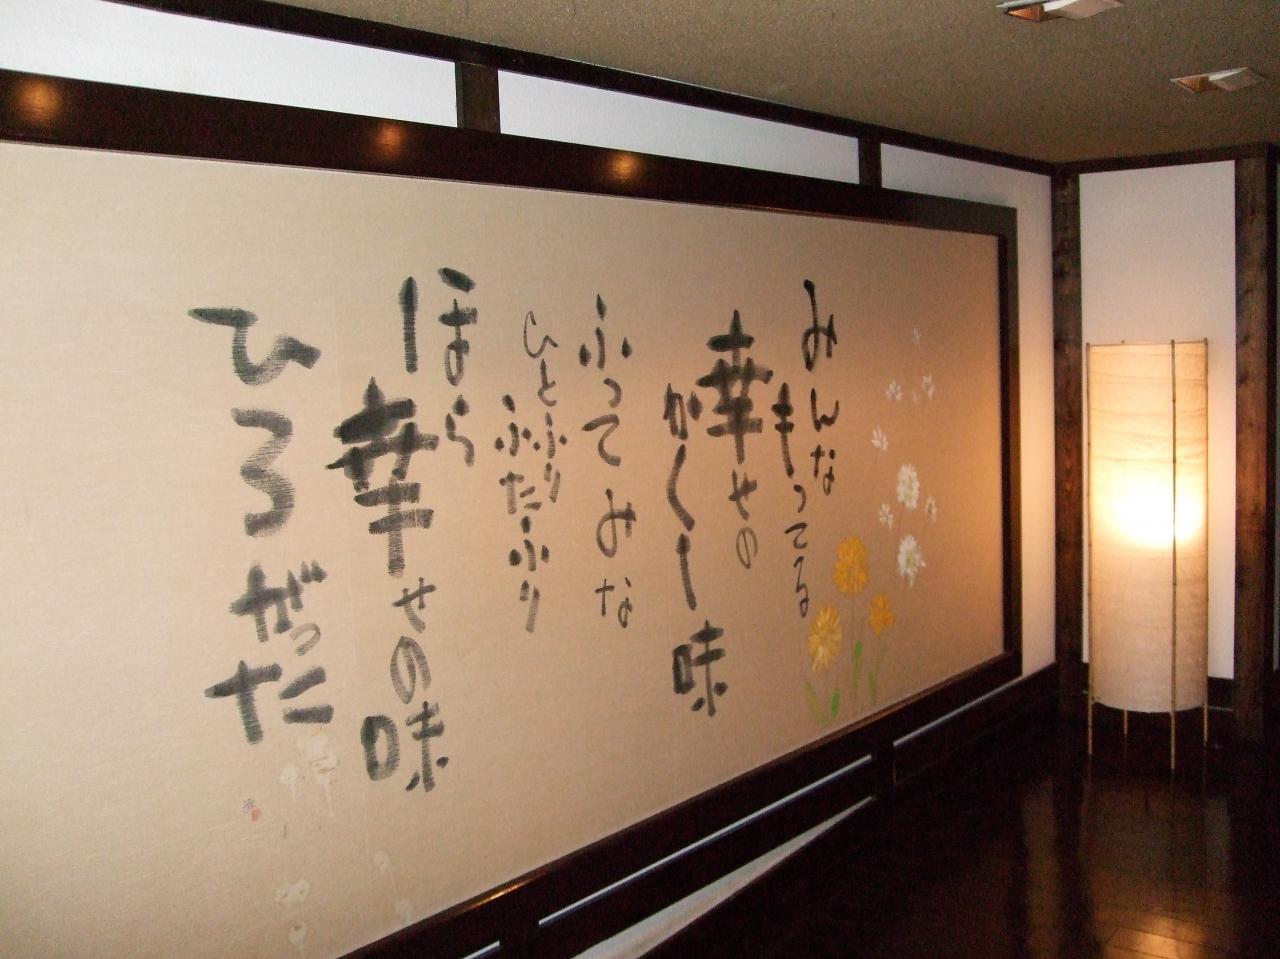 みんな
もってる
幸せの
かくし味
ふってみな
ひとふり
ふたふり
ほら
幸せの味
ひろがった